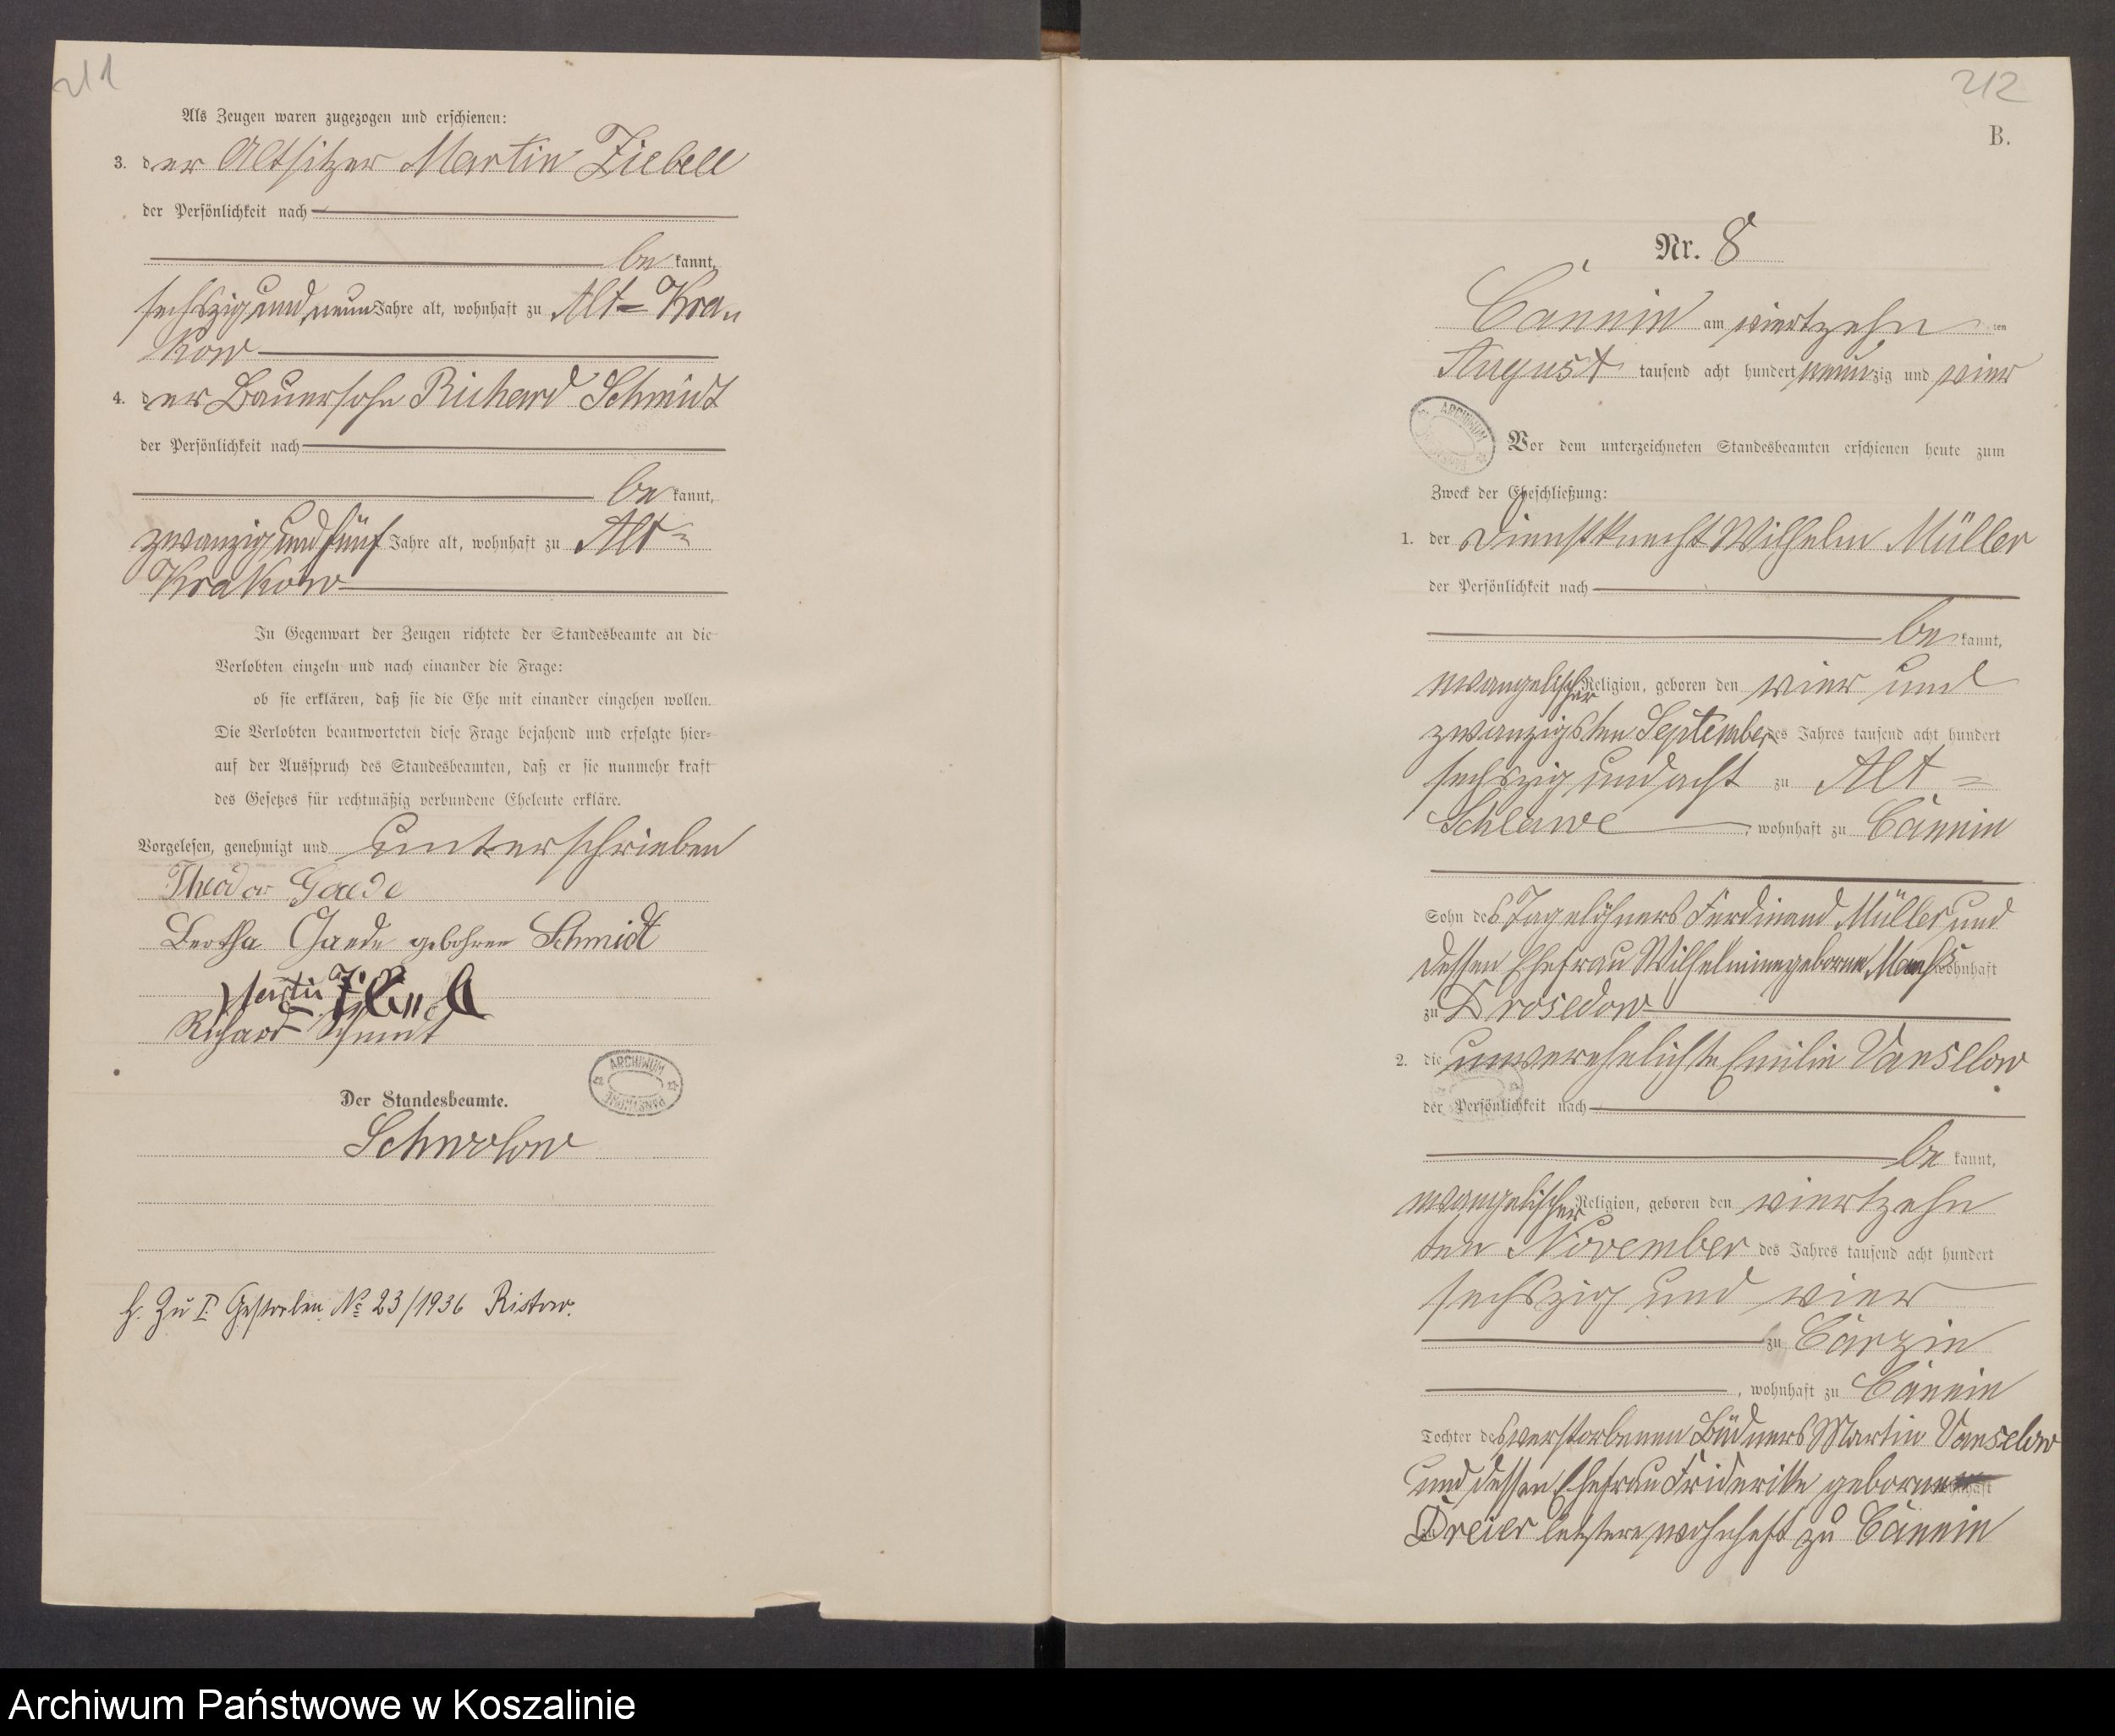 211
Als Zeugen waren zugezogen und erschienen:
3. der Altsitzer Martin Ziebell
der Persönlichkeit nach
be kannt,
sechszig und neun Jahre alt, wohnhaft zu Alt=Kra„
kow
4. der Bauersohn Richard Schmidt
der Persönlichkeit nach
be kannt,
zwanzig und fünf Jahre alt, wohnhaft zu Alt=
Krakow
In Gegenwart der Zeugen richtete der Standesbeamte an die
Verlobten einzeln und nach einander die Frage:
ob sie erklären, daß sie die Ehe mit einander eingehen wollen.
Die Verlobten beantworteten diese Frage bejahend und erfolgte hier=
auf der Ausspruch des Standesbeamten, daß er sie nunmehr kraft
des Gesetzes für rechtmäßig verbundene Eheleute erkläre.
Vorgelesen, genehmigt und unterschrieben
Theodor Gaede
Bertha Gaede gebohren Schmidt
Martin
Richard Schmidt
ARCHIWUM
Der Standesbeamte.
Schwolow
H. Zu I. Gestorben № 23/1936 Ristow.
212
B.
Nr. 8
Cännin am viertzehn ten
August tausend acht hundert neunzig und vier
ARCHIWUM
Vor dem unterzeichneten Standesbeamten erschienen heute zum
Zweck der Eheschließung:
1. der Dienstknecht Wilhelm Müller
der Persönlichkeit nach
be kannt,
evangelischer Religion, geboren den vier und
zwanzigsten September des Jahres tausend acht hundert
sechszig und acht zu Alt=
Schlawe, wohnhaft zu Cännin
Sohn des Tagelöhners Ferdinand Müller und
dessen Ehefrau Wilhelmine geborene wohnhaft
zu Drosedow
2. die unverehelichte Emilie Vanselow
der Persönlichkeit nach
be kannt,
evangelischer Religion, geboren den viertzehn
ten November des Jahres tausend acht hundert
sechszig und vier
zu Cärzin
, wohnhaft zu Cännin
Tochter des verstorbenen Büdners Martin Vanselow
und dessen Ehefrau Friderike geborene
Dreier letztere wohnhaft zu Cännin
Archiwum Państwowe w Koszalinie